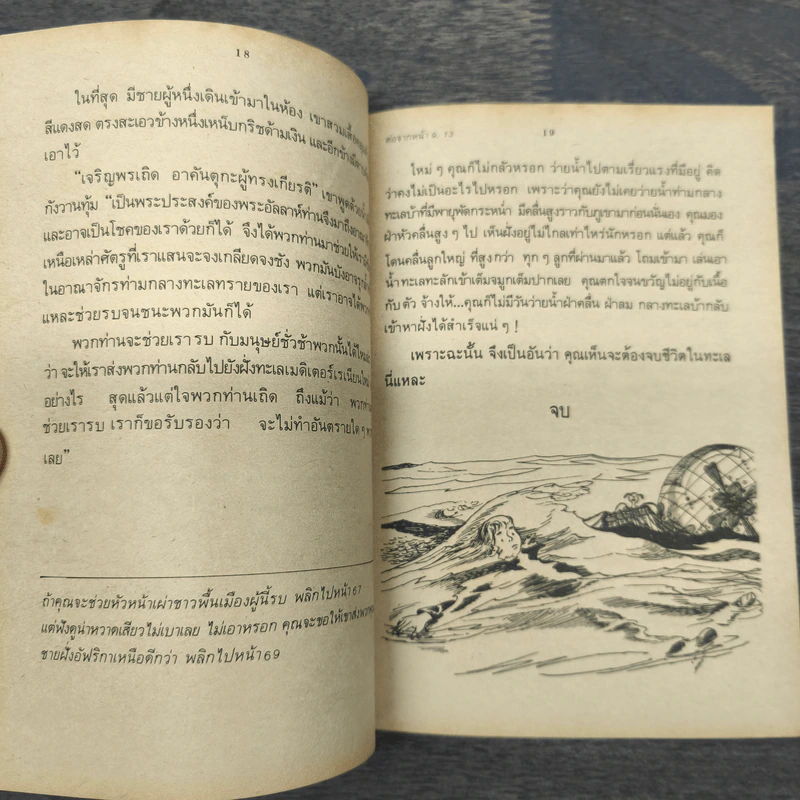 18
ในที่สุด มีชายผู้หนึ่งเดินเข้ามาในห้อง เขาสวมเสื้อ
สีแดงสด ตรงสะเอวข้างหนึ่งเหน็บกริชด้ามเงิน และอีกข้าง
เอาไว้
“เจริญพรเถิด อาคันตุกะผู้ทรงเกียรติ” เขาพูดด้วย
กังวานทุ้ม “เป็นพระประสงค์ของพระอัลลาห์ท่านจึงมาถึง
และอาจเป็นโชคของเราด้วยก็ได้ จึงได้พวกท่านมาช่วยให้เรา
เหนือเหล่าศัตรูที่เราแสนจะจงเกลียดจงชัง พวกมันบังอาจ
ในอาณาจักรท่ามกลางทะเลทรายของเรา แต่เราอาจได้
แหละช่วยรบจนชนะพวกมันก็ได้
พวกท่านจะช่วยเรารบ กับมนุษย์ชั่วช้าพวกนั้นได้ไหม
ว่า จะให้เราส่งพวกท่านกลับไปยังฝั่งทะเลเมดิเตอร์เรเนียน
อย่างไร สุดแล้วแต่ใจพวกท่านเถิด ถึงแม้ว่า พวกท่าน
ช่วยเรารบ เราก็ขอรับรองว่า จะไม่ทำอันตรายใด ๆ
เลย”
ถ้าคุณจะช่วยหัวหน้าเผ่าชาวพื้นเมืองผู้นี้รบ พลิกไปหน้า 67
แต่ฟังดูน่าหวาดเสียวไม่เบาเลย ไม่เอาหรอก คุณจะขอให้เขาส่ง
ชายฝั่งอัฟริกาเหนือดีกว่า พลิกไปหน้า 69
ต่อจากหน้า 9, 13
19
ใหม่ ๆ คุณก็ไม่กลัวหรอก ว่ายน้ำไปตามเรี่ยวแรงที่มีอยู่ คิด
ว่าคงไม่เป็นอะไรไปหรอก เพราะว่าคุณยังไม่เคยว่ายน้ำท่ามกลาง
ทะเลบ้าที่มีพายุพัดกระหน่ำ มีคลื่นสูงราวกับภูเขามาก่อนนั่นเอง คุณมอง
ฝ่าหัวคลื่นสูง ๆ ไป เห็นฝั่งอยู่ไม่ไกลเท่าไหร่นักหรอก แต่แล้ว คุณก็
โดนคลื่นลูกใหญ่ ที่สูงกว่า ทุก ๆ ลูกที่ผ่านมาแล้ว โถมเข้ามา เล่นเอา
น้ำทะเลทะลักเข้าเต็มจมูกเต็มปากเลย คุณตกใจจนขวัญไม่อยู่กับเนื้อ
กับตัว จ้างให้...คุณก็ไม่มีวันว่ายน้ำฝ่าคลื่น ฝ่าลม กลางทะเลบ้ากลับ
เข้าหาฝั่งได้สำเร็จแน่ ๆ !
เพราะฉะนั้น จึงเป็นอันว่า คุณเห็นจะต้องจบชีวิตในทะเล
นี่แหละ
จบ